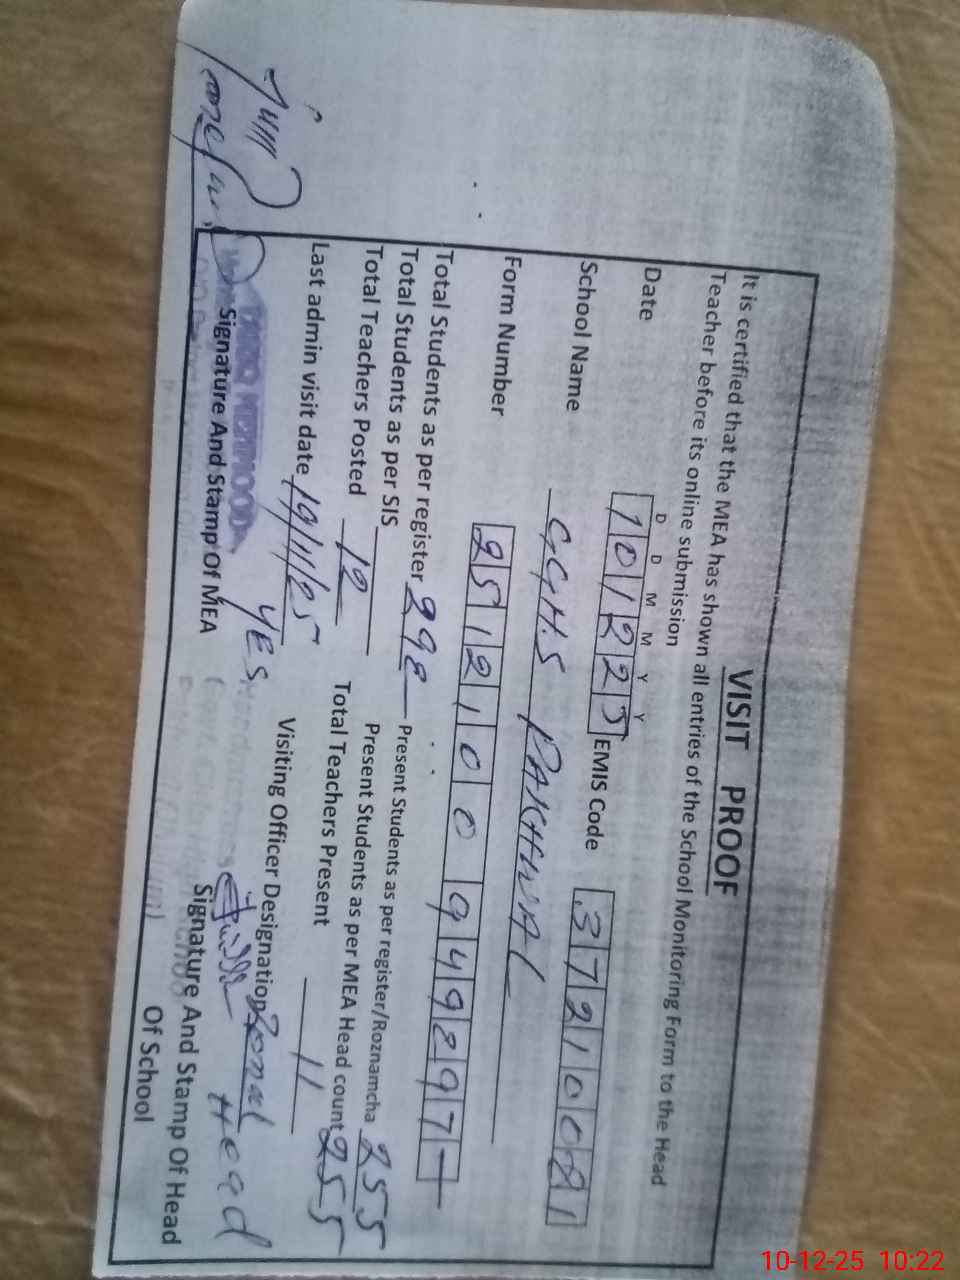 VISIT PROOF
It is certified that the MEA has shown all entries of the School Monitoring Form to the Head
Teacher before its online submission
D D M M Y Y
Date 101225 EMIS Code 37210081
School Name GGHS PAKHWAL
Form Number 2512100949897
Total Students as per register 298 Present Students as per register/Roznamcha 255
Total Students as per SIS Present Students as per MEA Head count 255
Total Teachers Posted 12 Total Teachers Present 11
Last admin visit date 19/11/25 Visiting Officer Designation Zonal Head
YES
Signature And Stamp Of MEA Signature And Stamp Of Head
Of School
10-12-25 10:22